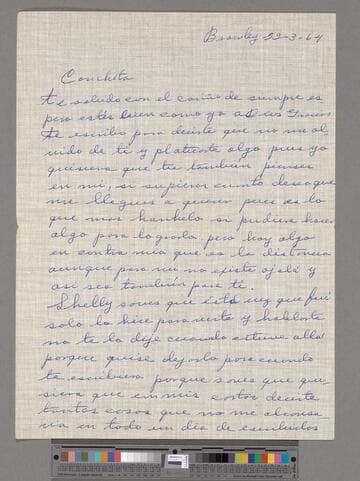 Brawley 22-3-64
Conchita
te saludo con el cariño de siempre es
pero estés bien como yo a Dios Gracias
te escribo para decirte que no me ol
vido de ti y platicarte algo pues yo
quisiera que tu tambien pienses
en mi, si supieras cuanto deseo que
me llegues a querer pues es lo
que mas hanhelo si pudiera hacer
algo para lograrlo pero hay algo
en contra mia que es la distancia
aunque para mi no existe ojalá y
asi sea tambien para ti.
Shelly sabes que esta vez que fui
solo lo hice para verte y hablarte
no te lo dije cuando estuve allá
porque quise dejarlo para cuando
te escribiera porque sabes que qui
siera que en mis cartas decirte
tantas cosas que no me alcansa
ria en todo un dia de escribirlas